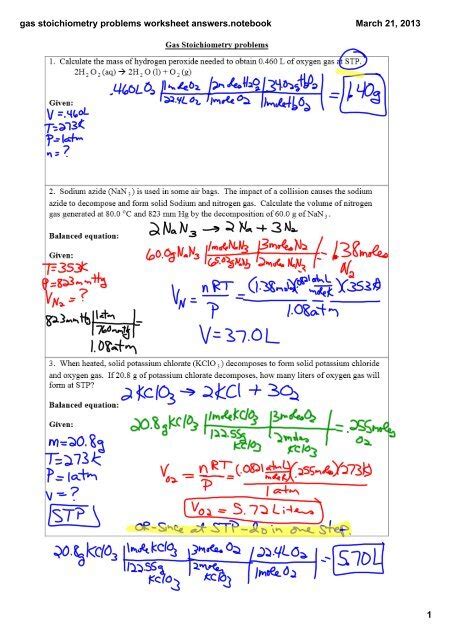 gas stoichiometry problems worksheet answers.notebook March 21, 2013
Gas Stoichiometry problems
1. Calculate the mass of hydrogen peroxide needed to obtain 0.460 L of oxygen gas at STP.
2H2O2 (aq) → 2H2O (l) + O2 (g)
.460L O2 | 1mole O2 | 2moles H2O2 | 34.02g H2O2 = 1.40g
22.4L O2 | 1mole O2 | 1mole H2O2
Given:
V=.460L
T=273K
P=1atm
n=?
2. Sodium azide (NaN3) is used in some air bags. The impact of a collision causes the sodium
azide to decompose and form solid Sodium and nitrogen gas. Calculate the volume of nitrogen
gas generated at 80.0 °C and 823 mm Hg by the decomposition of 60.0 g of NaN3.
2NaN3 → 2Na + 3N2
Balanced equation:
60.0g NaN3 | 1mole NaN3 | 3moles N2 = 1.38moles N2
65.02g NaN3 | 2moles NaN3
Given:
T=353K
P=823mmHg
VN2=?
823mmHg | 1atm =
760mmHg
1.08atm
VN = nRT = (1.38mol)(.0821 atm L)(353K)
P mole K
1.08atm
V=37.0L
3. When heated, solid potassium chlorate (KClO3) decomposes to form solid potassium chloride
and oxygen gas. If 20.8 g of potassium chlorate decomposes, how many liters of oxygen gas will
form at STP?
2KClO3 → 2KCl + 3O2
Balanced equation:
20.8g KClO3 | 1mole KClO3 | 3moles O2 = .255moles O2
122.55g KClO3 | 2moles KClO3
Given:
m=20.8g
T=273K
P=1atm
V=?
STP
VO2 = nRT = (.0821 atm L)(.255moles)(273K)
P mole K
1atm
VO2 = 5.72 Liters
OR-Since at STP-do in one step.
20.8g KClO3 | 1mole KClO3 | 3moles O2 | 22.4L O2 = 5.70L
122.55g KClO3 | 2moles KClO3 | 1mole O2
1